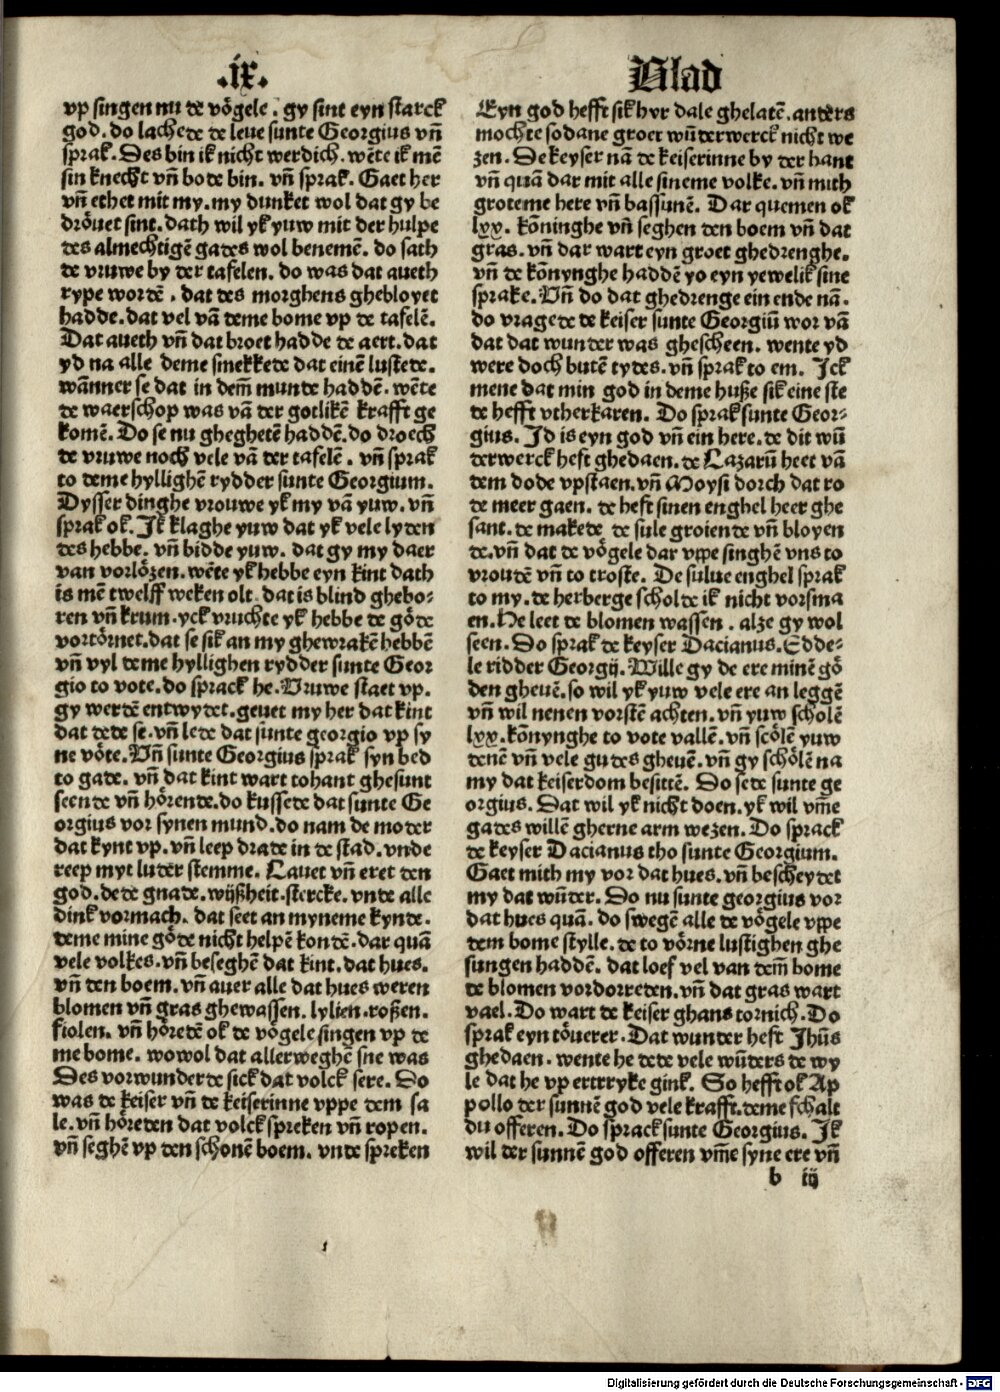 .ix.
Blad
vp singen nu de vögele. gy sint eyn starck
god. do lachede de leue sunte Georgius vn̄
sprak. Des bin ik nicht werdich. wēte ik mē
sin knecht vn̄ bode bin. vn̄ sprak. Gaet her
vn̄ ethet mit my. my dunket wol dat gy be
dröuet sint. dath wil yk yuw mit der hulpe
des almechtigē gades wol benemē. do sath
de vruwe by der tafelen. do was dat aueth
rype wordē. dat des morghens ghebloyet
hadde. dat vel vā deme bome vp de tafelē.
Dat aueth vn̄ dat broet hadde de aert. dat
yd na alle deme smekkede dat einē lustede.
wānner se dat in dem̄ munde haddē. wēte
de waerschop was vā der gotlikē krafft ge
komē. Do se nu ghegetē haddē. do droech
de vruwe noch vele vā der tafelē. vn̄ sprak
to deme hyllighē rydder sunte Georgium.
Dysser dinghe vrouwe yk my vā yuw. vn̄
sprak ok. Ik klaghe yuw dat yk vele lyden
des hebbe. vn̄ bidde yuw. dat gy my daer
van vorlözen. wēte yk hebbe eyn kint dath
is mē twelff weken olt. dat is blind ghebo-
ren vn̄ krum. yck vruchte yk hebbe de göde
vortörnet. dat se sik an my ghewrakē hebbē
vn̄ vyl deme hyllighen rydder sunte Geor
gio to vote. do sprack he. Vruwe staet vp.
gy werdē entwydet. geuet my her dat kint
dat dede se. vn̄ lede dat sunte georgio vp sy
ne vöte. Vn̄ sunte Georgius sprak syn bed
to gade. vn̄ dat kint wart tohant ghesunt
seende vn̄ hörende. do kussede dat sunte Ge
orgius vor synen mund. do nam de moder
dat kynt vp. vn̄ leep drade in de stad. vnde
reep myt luder stemme. Lauet vn̄ eret den
god. de de gnade. wijßheit. stercke. vnde alle
dink vormach. dat seet an myneme kynde.
deme mine göde nicht helpē kondē. dar quā
vele volkes. vn̄ beseghē dat kint. dat hues.
vn̄ den boem. vn̄ auer alle dat hues weren
blomen vn̄ gras ghewassen. lylien. roßen.
fiolen. vn̄ höredē ok de vögele singen vp de
me bome. wowol dat allerweghē sne was
Des vorwunderde sick dat volck sere. Do
was de keiser vn̄ de keiserinne vppe dem sa
le. vn̄ höreden dat volck spreken vn̄ ropen.
vn̄ seghē vp den schonē boem. vnde spreken
Eyn god hefft sik hyr dale ghelatē. anders
mochte sodane groer wūderwerck nicht we
zen. De keyser nā de keiserinne by der hant
vn̄ quā dar mit alle sineme volke. vn̄ mith
groteme here vn̄ bassunē. Dar quemen ok
lxx. köninghe vn̄ seghen den boem vn̄ dat
gras. vn̄ dar wart eyn groet ghedrenghe.
vn̄ de könynghe haddē yo eyn yewelik sine
sprake. Vn̄ do dat ghedrenge ein ende nā.
do vragede de keiser sunte Georgiū wor vā
dat dat wunder was ghescheen. wente yd
were doch butē tydes. vn̄ sprak to em. Ick
mene dat min god in deme huße sik eine ste
de hefft vtherkaren. Do sprak sunte Geor-
gius. Id is eyn god vn̄ ein here. de dit wū
derwerck heft ghedaen. de Lazarū heet vā
dem dode vpstaen. vn̄ Moysi dorch dat ro
de meer gaen. de heft sinen enghel heer ghe
sant. de makede de sule groiende vn̄ bloyen
de. vn̄ dat de vögele dar vppe singhē vns to
vroudē vn̄ to troste. De sulue enghel sprak
to my. de herberge scholde ik nicht vorsma
en. He leet de blomen wassen. alze gy wol
seen. Do sprak de keyser Dacianus. Edde-
le ridder Georgij. Wille gy de ere minē gö
den gheuē. so wil yk yuw vele ere an leggē
vn̄ wil nenen vorstē achten. vn̄ yuw scholē
lxx. könynghe to vote vallē. vn̄ scölē yuw
denē vn̄ vele gudes gheuē. vn̄ gy schölē na
my dat keiserdom besittē. Do sede sunte ge
orgius. Dat wil yk nicht doen. yk wil vm̄e
gades willē gherne arm wezen. Do sprack
de keyser Dacianus tho sunte Georgium.
Gaet mith my vor dat hues. vn̄ bescheydet
my dat wūder. Do nu sunte georgius vor
dat hues quā. do swegē alle de vögele vppe
dem bome stylle. de to vörne lustighen ghe
sungen haddē. dat loef vel van dem̄ bome
de blomen vordorreden. vn̄ dat gras wart
vael. Do wart de keiser ghans tornich. Do
sprak eyn töuerer. Dat wunder heft Jhūs
ghedaen. wente he dede vele wūders de wy
le dat he vp ertrryke gink. So hefft ok Ap
pollo der sunnē god vele krafft. deme schalt
du offeren. Do sprack sunte Georgius. Ik
wil der sunnē god offeren vm̄e syne ere vn̄
b iij
Digitalisierung gefördert durch die Deutsche Forschungsgemeinschaft - DFG